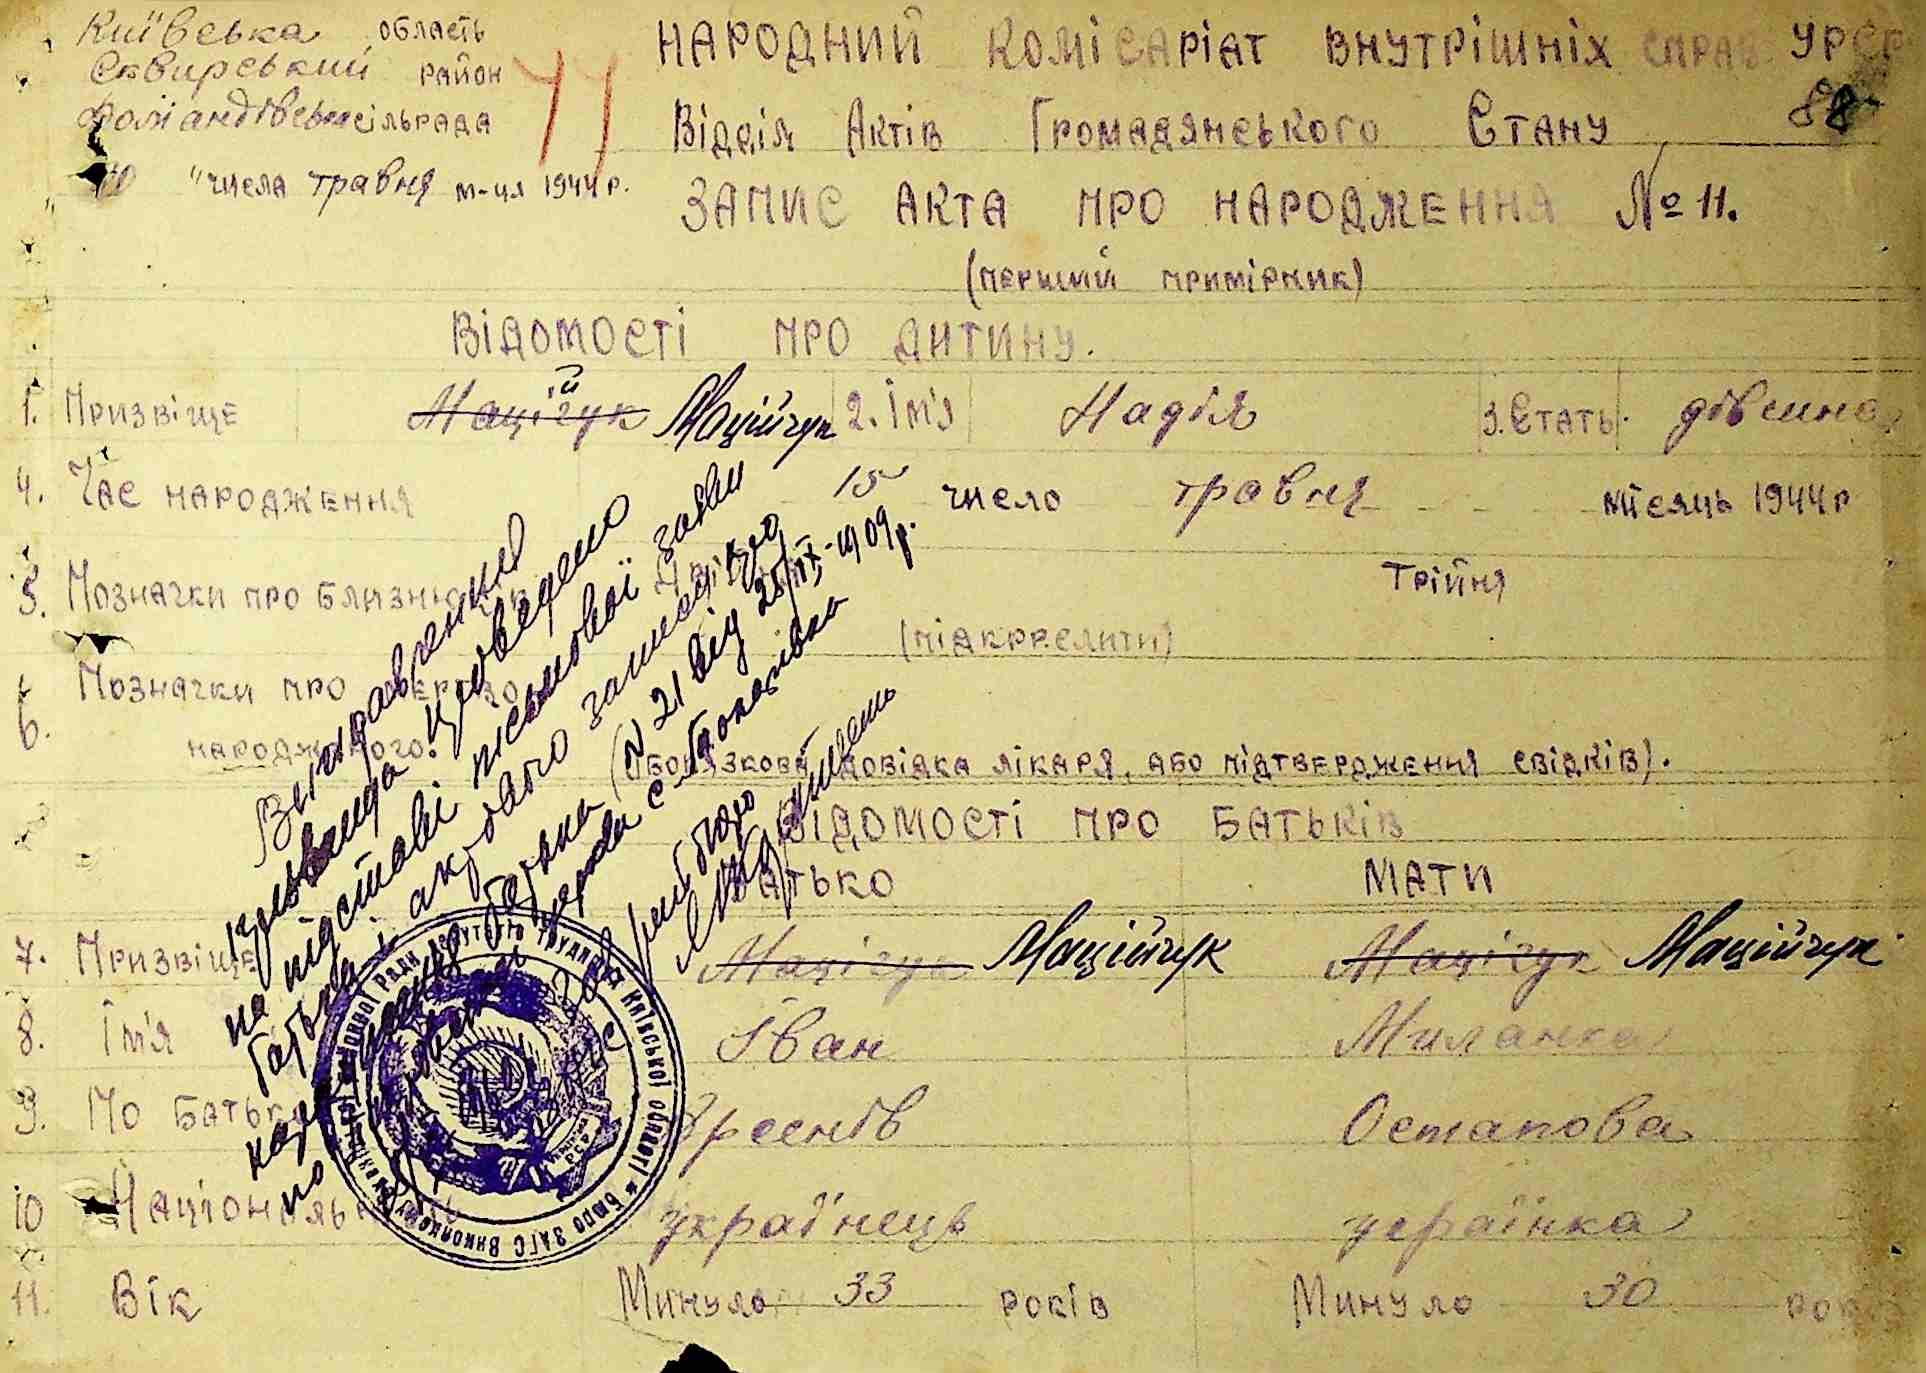 Київська область
Сквирський район
сільрада
" числа травня м-ця 1944 р.
НАРОДНИЙ КОМІСАРІАТ ВНУТРІШНІХ СПРАВ УРСР
88
Відділ Актів Громадянського Стану
ЗАПИС АКТА ПРО НАРОДЖЕННЯ № 11.
(перший примірник)
Відомості про дитину.
1. Призвіще Маційчук Маційчук 2. Ім'я Надія 3. Стать дівчина
4. Час народження 15 число травня місяць 1944 р
5. Позначки про близнюків Трійня
(підкреслити)
6. Позначки про
народженого. (Обов'язкова довідка лікаря, або підтвердження свідків).
Виправлення
прізвища проведено
на підставі письмової заяви
батька і актового запису про
народження батька N 21 від
Відомості про батьків
Батько Мати
7. Призвіще Мацічук Маційчук Мацічук Маційчук
8. Ім'я Іван Миланка
9. По батькові Арсенів Остапова
10 Національність українець українка
11. Вік Минуло 33 років Минуло 30 років
депутатів трудящих Київської області * Бюро ЗАГС Виконкому